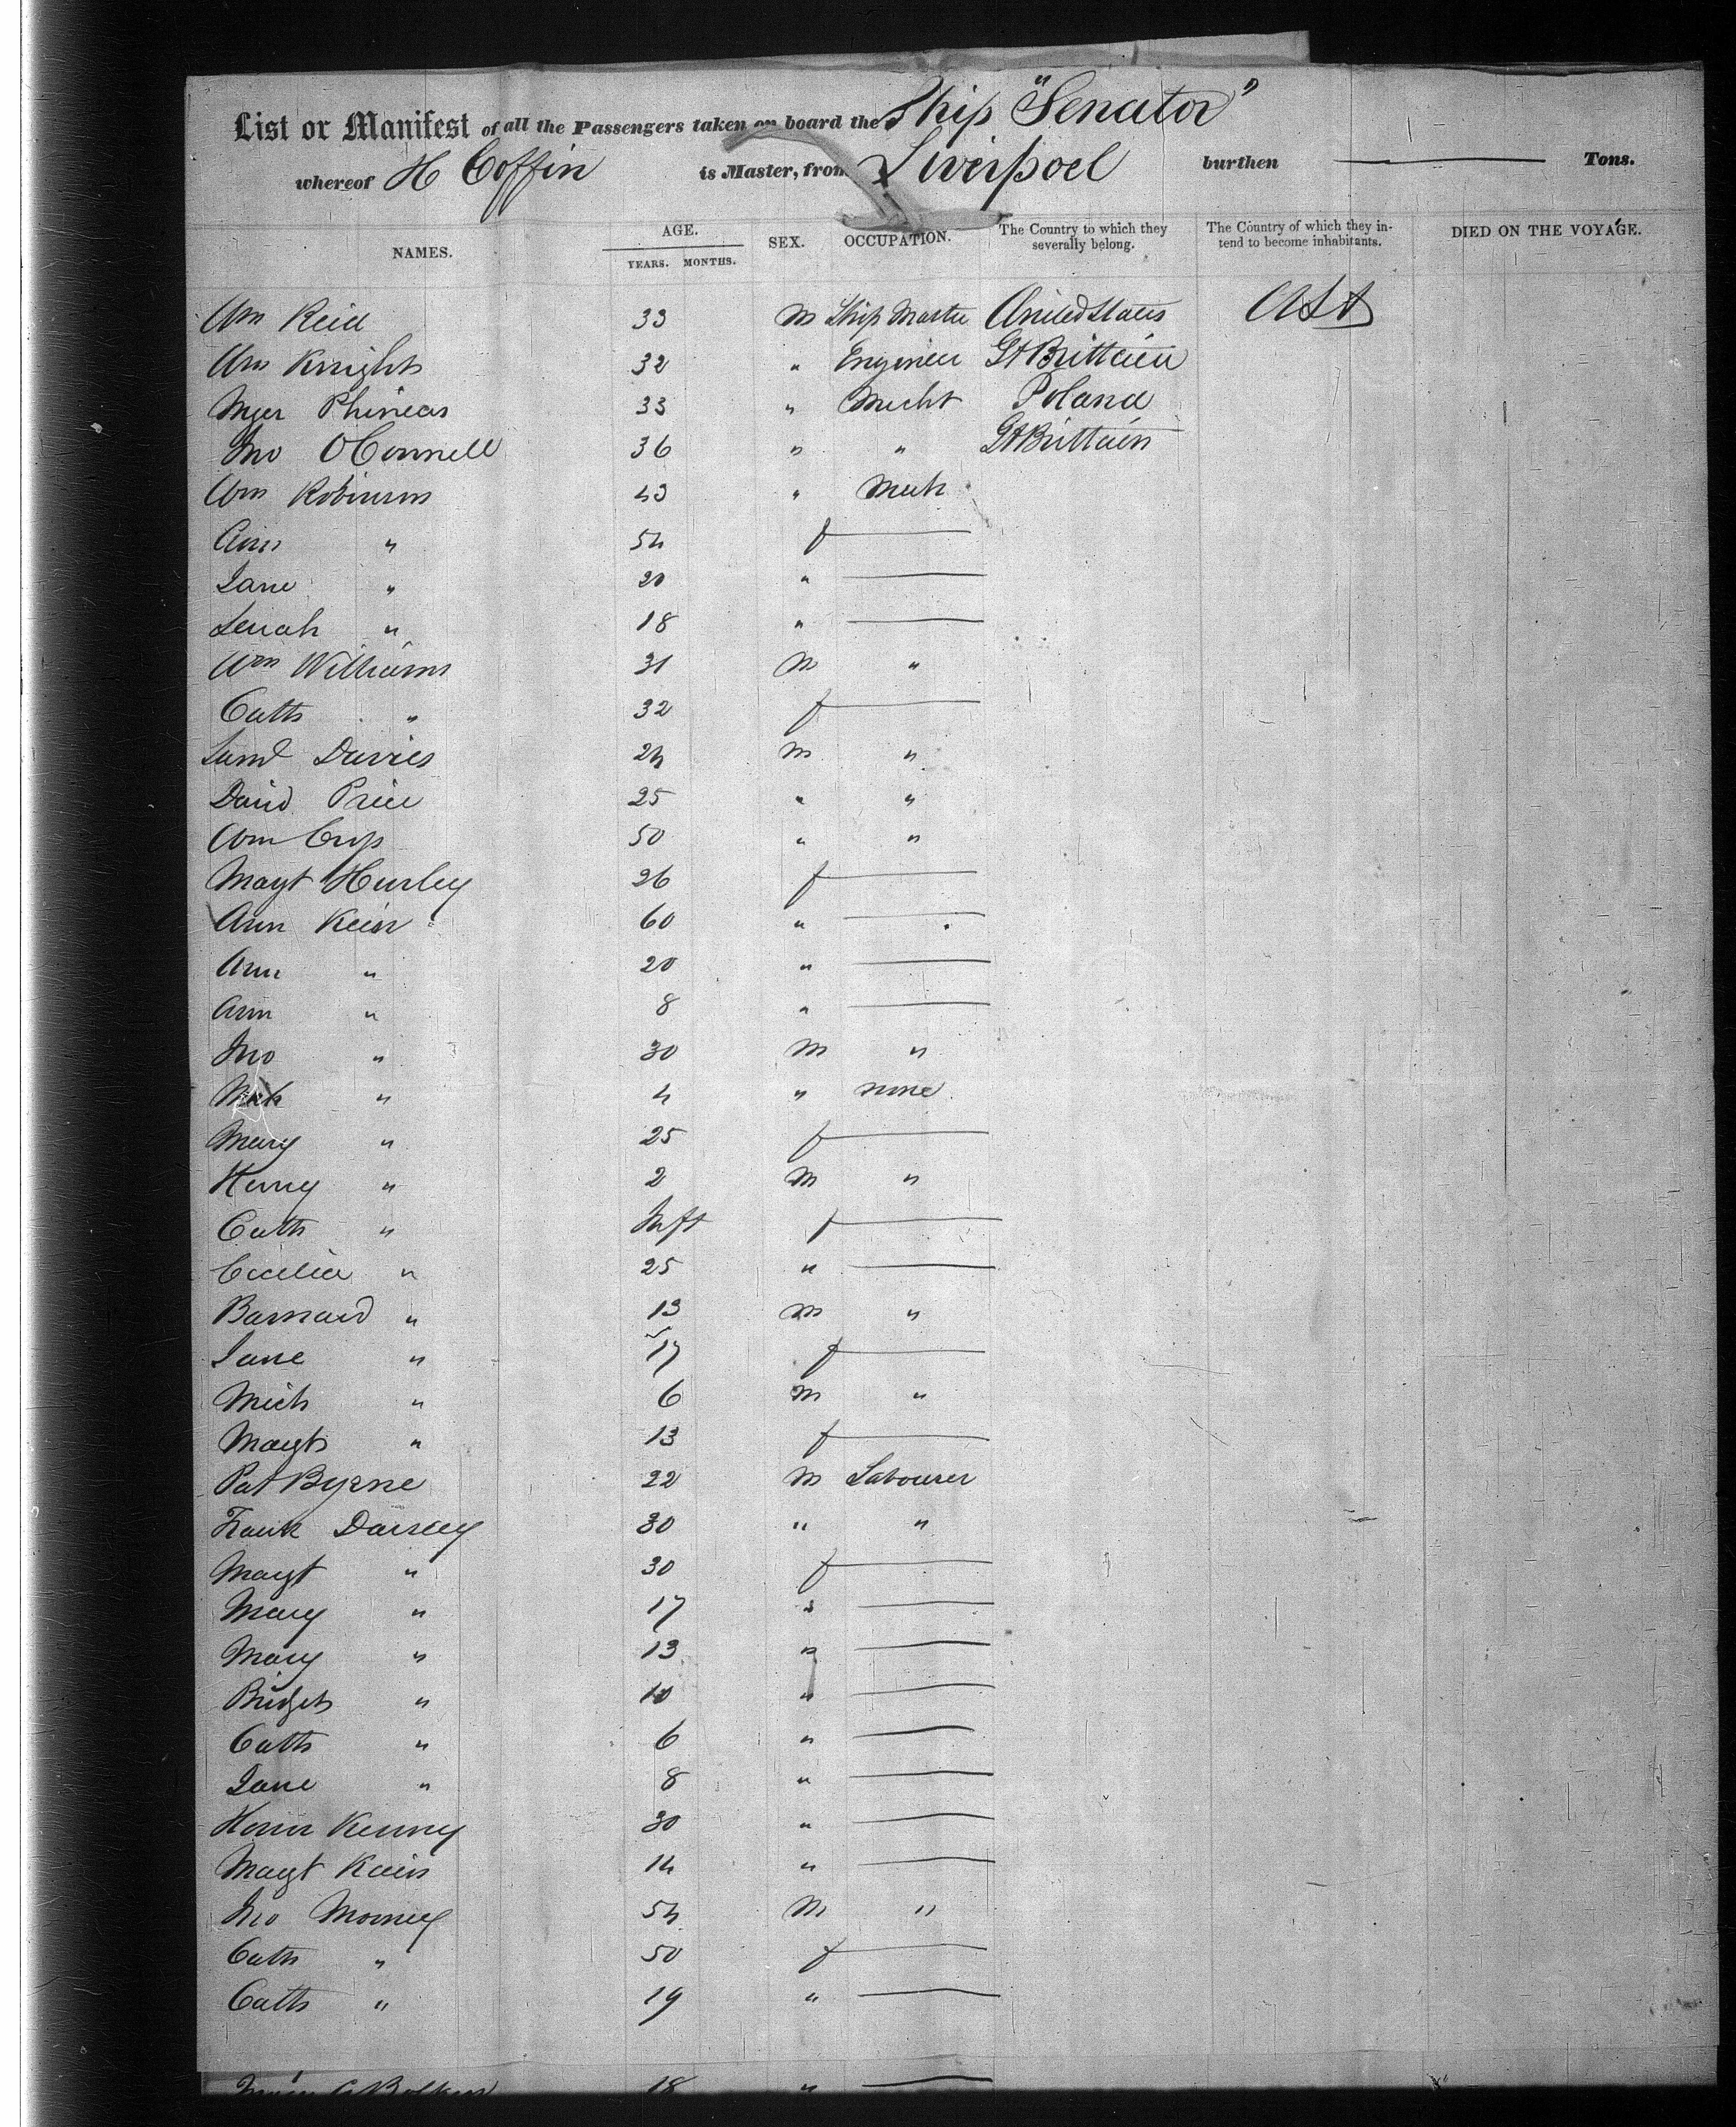 List or Manifest of all the Passengers taken on board the Ship "Senator"
whereof H Coffin is Master, from Liverpool burthen ——— Tons.
NAMES. AGE. YEARS. MONTHS. SEX. OCCUPATION. The Country to which they severally belong. The Country of which they intend to become inhabitants. DIED ON THE VOYAGE.
Wm Reid 33 M Ship Master United States
Wm Knight 32 " Engineer Gt Brittain
Myer Phineas 33 " Mecht Poland
Jno OConnell 36 " " Gt Brittain
Wm Robinson 43 " Mech
Ann " 54 f —
Jane " 20 " —
" 18 " —
Wm Williams 31 M "
Cath " 32 f —
Saml Davies 24 M "
David Price 25 " "
Wm 50 " "
Magt Hurley 26 f —
Ann Keirn 60 " —
Ann " 20 " —
Ann " 8 " —
Jno " 30 M "
" 4 " none
Mary " 25 f —
Henry " 2 M "
Cath " Inft f —
Cicilia " 25 " —
Barnard " 13 M "
Jane " 17 f —
Mich " 6 M "
Magt " 13 f —
Pat Byrne 22 M Labourer
Frank 30 " "
Magt " 30 f —
Mary " 17 " —
Mary " 13 " —
Bridget " 10 " —
Cath " 6 " —
Jane " 8 " —
Kenny 30 " —
Magt 14 " —
Jno 54 M "
Cath " 50 f —
Cath " 19 " —
18 " —